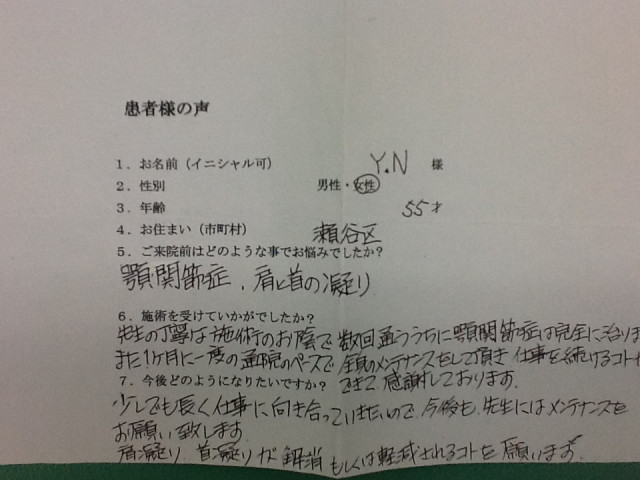 患者様の声
1．お名前（イニシャル可） Y.N 様
2．性別 男性・女性
3．年齢 55才
4．お住まい（市町村） 瀬谷区
5．ご来院前はどのような事でお悩みでしたか？
顎関節症、肩と首の凝り
6．施術を受けていかがでしたか？
先生の丁寧な施術のお陰で数回通ううちに顎関節症は完全に治りま
また1ヶ月に一度の通院のペースで全身のメンテナンスをして頂き仕事を続けるコトが
7．今後どのようになりたいですか？ できて感謝しております。
少しでも長く仕事に向き合っていきたいので、今後も先生にはメンテナンスを
お願い致します。
肩凝り、首凝りが解消もしくは軽減されるコトを願います。